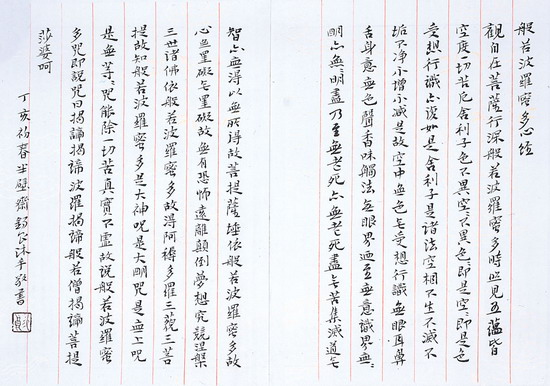 般若波羅蜜多心经
觀自在菩薩行深般若波羅蜜多時照見五蘊皆
空度一切苦厄舍利子色不異空〻不異色〻即是空〻即是色
受想行識亦復如是舍利子是諸法空相不生不滅不
垢不淨不增不減是故空中無色無受想行識無眼耳鼻
舌身意無色聲香味觸法無眼界迺至無意識界無〻
明亦無〻明盡乃至無老死亦無老死盡無苦集滅道無
智亦無得以無所得故菩提薩埵依般若波羅蜜多故
心無罣礙無罣礙故無有恐怖遠離顛倒夢想究竟涅槃
三世諸佛依般若波羅蜜多故得阿耨多羅三藐三菩
提故知般若波羅蜜多是大神咒是大明咒是無上咒
是無等〻咒能除一切苦真實不虛故說般若波羅蜜
多咒即說咒曰揭諦揭諦波羅揭諦般若僧揭諦菩提
莎婆呵
丁亥初春 齋 沐手敬書